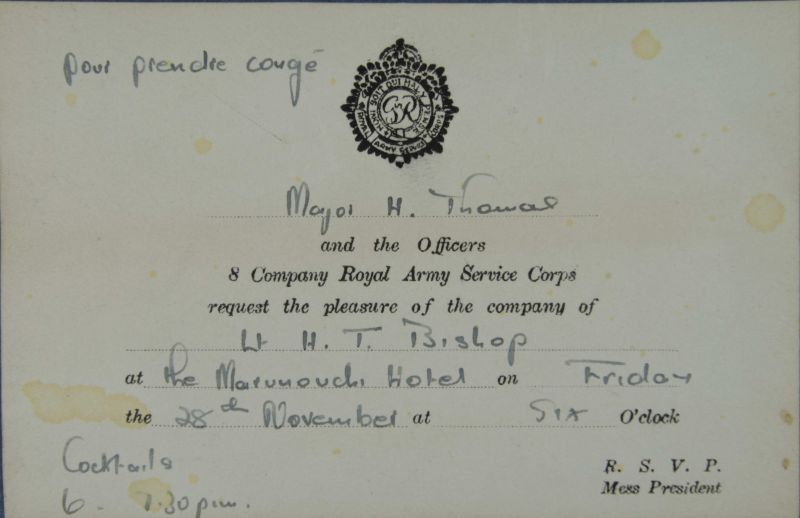 pour prendre congé
HONI SOIT QUI MAL Y PENSE
GviR
ROYAL ARMY SERVICE CORPS
Major H. Thomas
and the Officers
8 Company Royal Army Service Corps
request the pleasure of the company of
Lt H. T. Bishop
at the Marunouchi Hotel on Friday
the 28th November at Six O'clock
Cocktails
R. S. V. P.
Mess President
6 - 7.30 p.m.